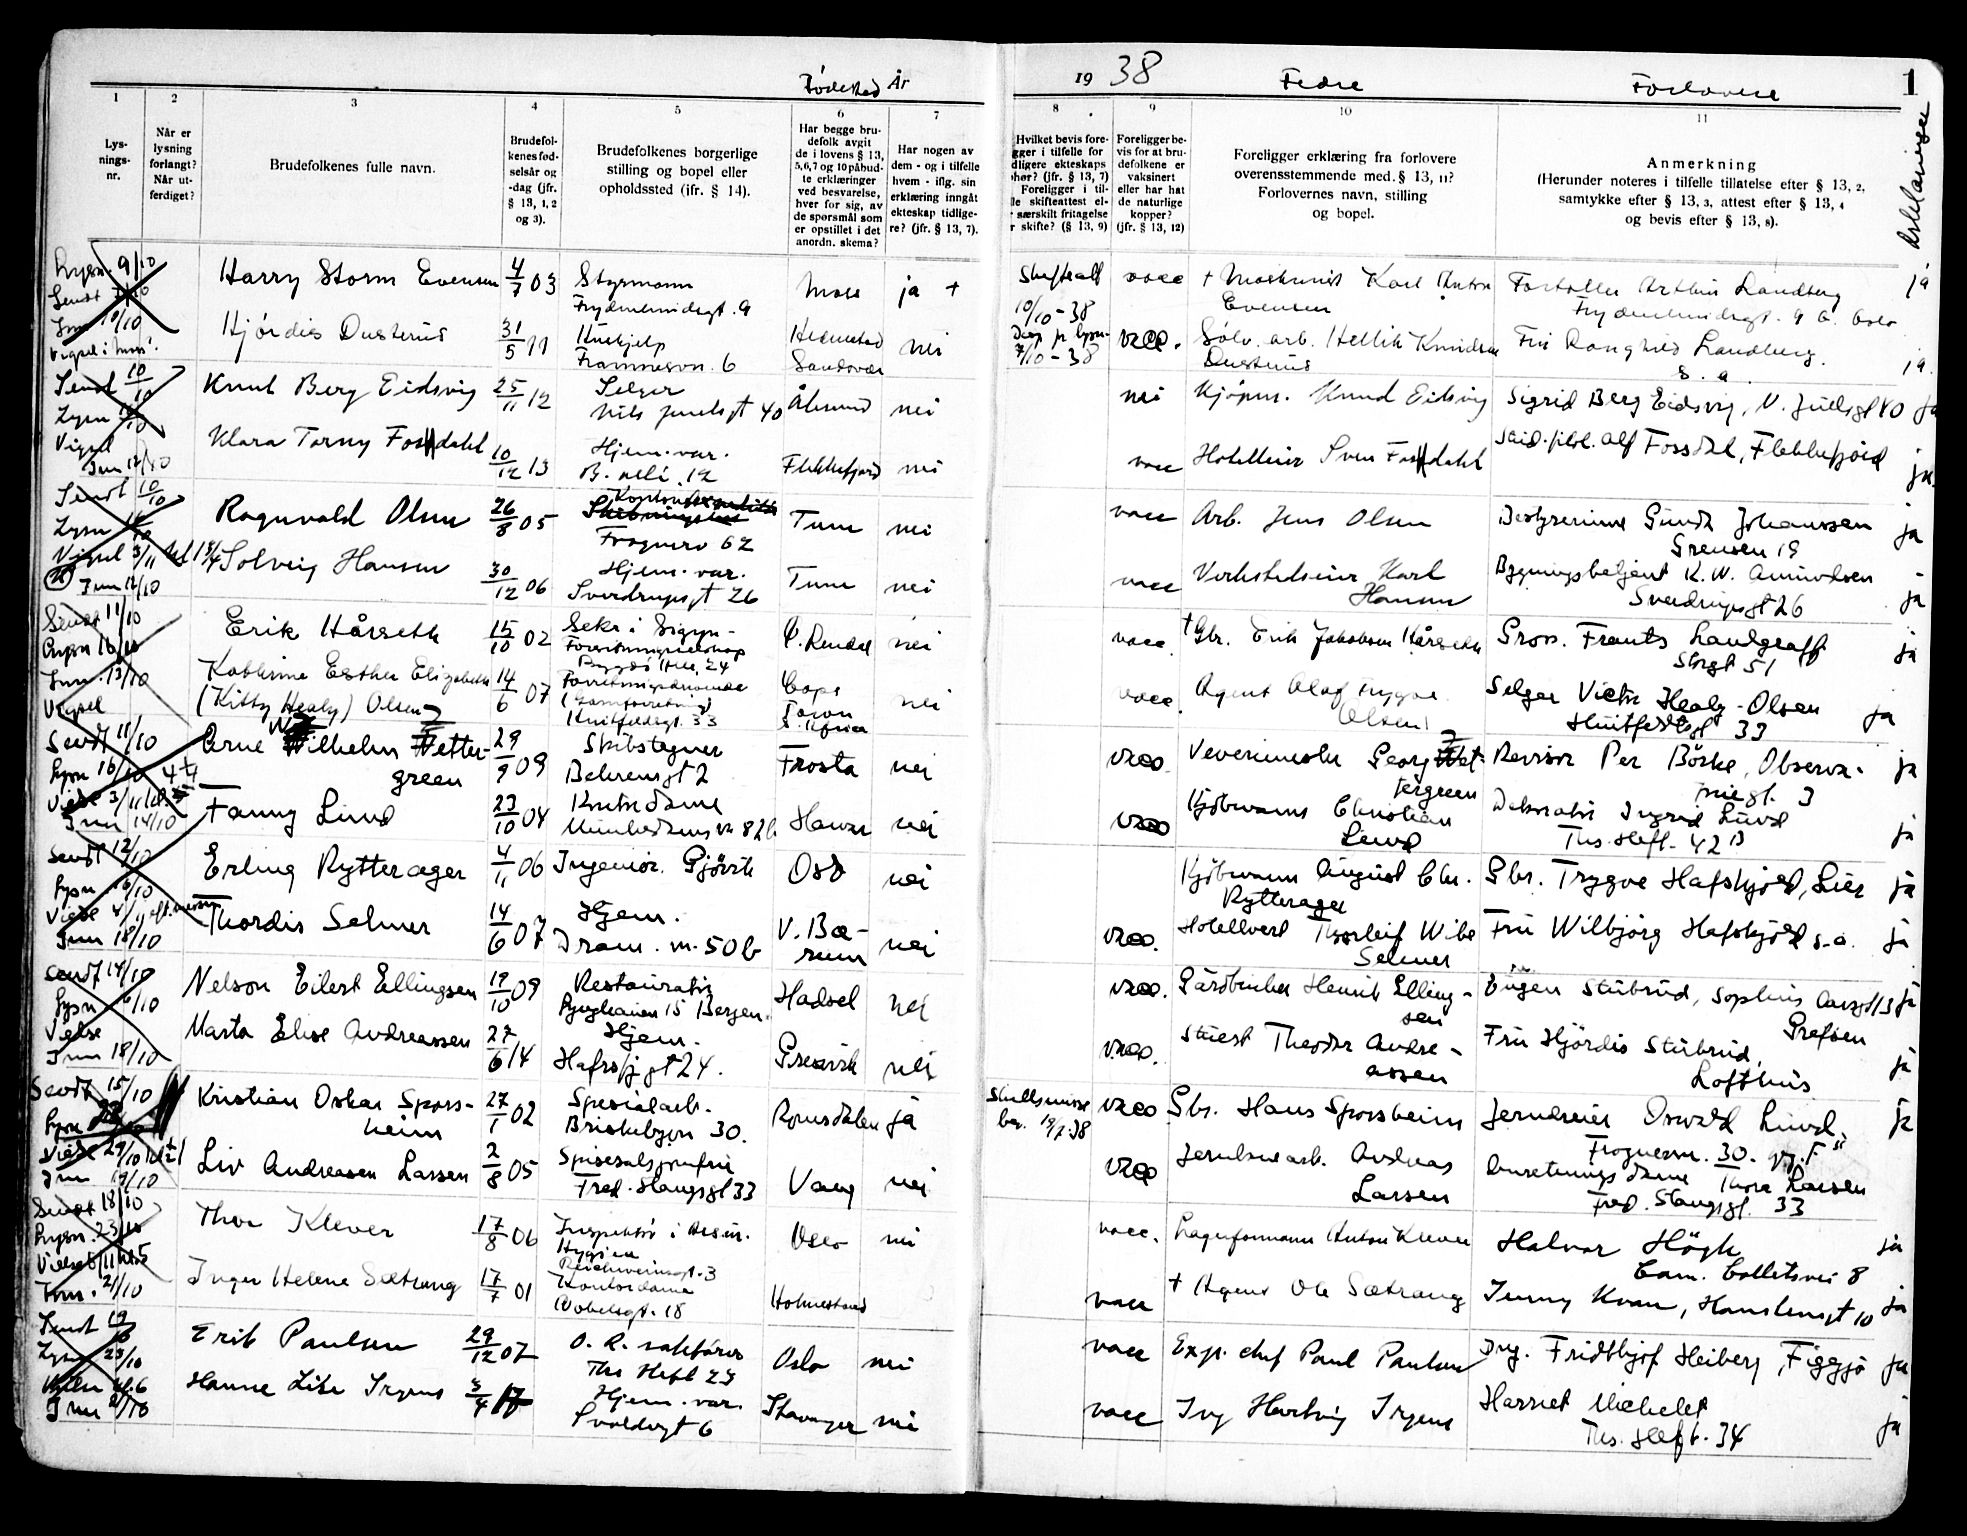 Fødested År
1
2
3
4
5
6
7
Lys-
nings-
nr.
Når er
lysning
forlangt?
Når ut-
ferdiget?
Brudefolkenes fulle navn.
Brudefol-
kenes fød-
selsår og
-dag (jfr.
§ 13, 1, 2
og 3).
Brudefolkenes borgerlige
stilling og bopel eller
opholdssted (ifr. § 14).
Har begge bru-
defolk avgit
de i lovens § 13,
5,6,7 og 10 påbud-
te erklæringer
ved besvarelse,
hver for sig, av
de spørsmål som
er opstillet i det
anordn. skema?
Har nogen av
dem - og i tilfelle
hvem - iflg. sin
erklæring inngåt
ekteskap tidlige-
re? (jfr. § 13, 7).
Lysn. 9/10
Harry Storm Evensen
4/7 03
Styrmann
Frydenlundsgt. 9
Moss
ja +
Hjørdis Dusterud
31/5 11
Hushjelp
Framnesvn. 6
Sandsvær
nei
Sendt 10/10
Knut Berg Eidsvig
25/11 12
Selger
Nils Juelsgt 40
Ålesund
nei
Vigsel
Inn 12/10
Klara Torny Fossdahl
10/12 13
Hjem. var.
B. alle. 12
Flekkefjord
nei
Sendt 10/10
Ragnvald Olsen
26/8 05
Frognerv 62
Tune
nei
Inn 12/10
Solveig Hansen
30/12 06
Hjem. var.
Sverdrupsgt 26
Tune
nei
Sendt 11/10
Lysn 16/10
Erik Hårseth
15/10 02
Sekr i Sigyn-
Forsikringsselskap
Bygdø Alle. 24
Ø. Rendal
nei
Inn. 13/10
Vigsel
Kathrine Esther Elizabeth
(Kitty Healy) Olsen
14/6 07
Forretningsdrivende
(Garnforretning)
Huitfeldtsgt. 33
Cape
Town
S. Africa
nei
Sendt 11/10
Lysn 16/10
Arne Wilhelm Wetter-
green
29/9 09
Skibstegner
Behrensgt 2
Frosta
nei
Inn 14/10
Fanny Lund
23/10 04
Kontordame
Munkedamsvn 82b
nei
Sendt 12/10
Lysn 16/10
Erling Rytterager
4/11 06
Ingeniør. Gjövik
Oslo
nei
Inn 18/10
Thordis Selmer
14/6 07
Hjem.
Dram. vn. 50b
V. Bæ-
rum
nei
Sendt 14/10
Lysn 16/10
Nelson Eilert Ellingsen
19/10 09
Restauratør
15 Bergen.
Hadsel
nei
Vielse
Inn 18/10
Marta Elise Andreassen
27/6 14
Hjem.
Hafrsfj.gt 24.
nei
Sendt 15/10
Kristian Oskar Spors-
heim
27/1 02
Spesialarb.
Briskebyvn 30.
Romsdalen
ja
Inn 19/10
Liv Andreasen Larsen
2/8 05
Spisesalsjomfru
Fred. Stangsgt 33
Vang
nei
Sendt 18/10
Lysn. 23/10
Thor Klever
17/8 06
Inspektør i Assur.
Hygiea
Reichweinsgt. 3
Oslo
nei
Inn. 21/10
Inger Helene Sætrang
17/7 01
Kontordame
Nobelsgt. 18
Holmestrand
Sendt 19/10
Lysn 23/10
Erik Paulsen
29/12 07
O. R. sakfører
Ths Heft 23
Oslo
nei
Hanne Lise Irgens
3/4 17
Hjem. var.
Svoldergt 6
Stavanger
nei
19 38
Fedre
Forlovere
1
8
9
10
11
Hvilket bevis fore-
gger i tilfelle for
dligere ekteskaps
phør? (jfr. § 13, 7)
Foreligger i til-
le skifteattest el-
r særskilt fritagelse
r skifte? (§ 13, 9)
Foreligger be-
vis for at bru-
defolkene er
vaksinert
eller har hat
de naturlige
kopper?
(jfr. § 13, 12)
Foreligger erklæring fra forlovere
overensstemmende med. § 13, 11?
Forlovernes navn, stilling
og bopel.
Anmerkning
(Herunder noteres i tilfelle tillatelse efter § 13, 2,
samtykke efter § 13, 3, attest efter § 13, 4
og bevis efter § 13, 8).
Erklæringer
Skifteatt
10/10-38
vacc
+ Maskinist Karl Anton
Evensen
Forvalter Arthur Landberg
Frydenlundsgt. 9 b. Oslo
ja
Disp fr lysn.
7/10-38
vacc.
Sølv. arb. Hellik Knudsen
Dusterud
Fru Ranghild Landberg.
s. a.
ja.
nei
Kjøpm. Knud Eidsvig
Sigrid Berg Eidsvig, N. Juelsgt 40
ja
vacc
Hotelleier Sven Fossdahl
Alf Fossdal, Flekkefjord
ja.
vacc
Arb. Jens Olsen
Bestyrerinne Gunda Johanssen
Grensen 19
ja
vacc
Verkstedseier Karl
Hansen
Bygningsbetjent K. W. Amundsen
Sverdrupsgt 26
ja
vacc.
+ Gbr. Erik Jakobsen Hårseth
Gross. Frants Landgraff
Storgt 51
ja
vacc.
Agent Olaf Trygve
Olsen
Selger Victor Healy-Olsen
Huitfeldtsgt 33
ja
vacc
Veverimester Georg Wet-
tergreen
Revisor Per Börke, Observa-
toriegt. 3
ja
vacc
Kjöbmann Christian
Lund
Dekoratør Ingrid Lund
Ths. Heft. 42 B
ja
Kjöbmann August Chr.
Rytterager
Gbr. Trygve Hafskjold, Lier
ja
vacc.
Hotellvert Thorleif Wibe
Selmer
Fru Wilbjörg Hafskjold s. a.
ja
vacc.
Gårdbruker Henrik Elling-
sen
Eugen Stubrud, Sophus
Grefsen
ja
vacc.
Theodor Andre-
assen
Fru Hjördis Stubrud,
Lofthus
ja
vacc
Gbr. Hans Sporsheim
Jerndreier Osvald Lund,
Frognerv. 30.
ja
vacc
Jernbanearb. Andreas
Larsen
Thora Larsen
Fred. Stangsgt. 33
vacc.
Lagerformann Anton Klever
Halvor Högh
Cam. Colletsvei 8
ja
vacc
+ Agent Ole Sætrang
Jenny Kvam, Hanslensgt 10
ja
vacc
Exp. chef Paul Paulsen
Ing. Fridthjof Heiberg, Figgjo
ja
vacc
Ing Hartvig Irgens
Harriet Michelet
Ths. Heft. 34
ja